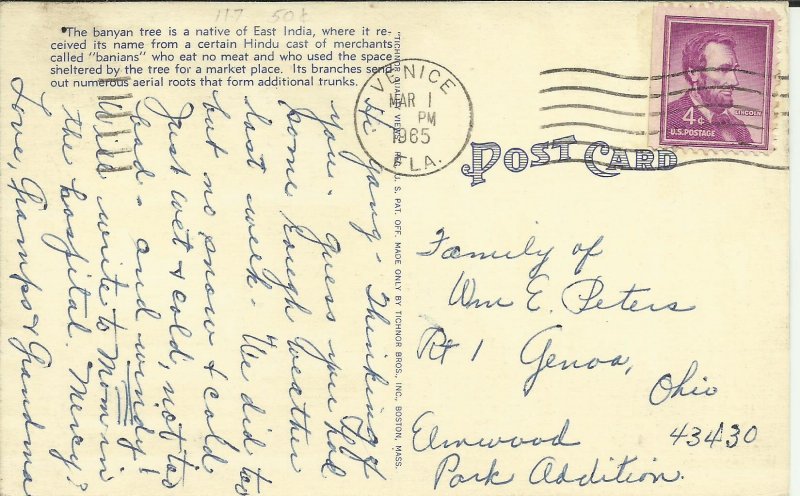 117 50¢
The banyan tree is a native of East India, where it re-
ceived its name from a certain Hindu cast of merchants
called "banians" who eat no meat and who used the space
sheltered by the tree for a market place. Its branches send
out numerous aerial roots that form additional trunks.
Hi gang - Thinking of
you. Guess you had
some rough weather
last week. We did too
but no snow & cold
Just wet & cold, not too
bad - and windy!
Will write to Mom in
the hospital. Mercy?
Love, Gramps & Grandma
"TICHNOR QUALITY VIEWS," REG. U. S. PAT. OFF. MADE ONLY BY TICHNOR BROS., INC., BOSTON, MASS.
VENICE
MAR 1
PM
1965
FLA.
LINCOLN
4¢
U.S. POSTAGE
POST CARD
Family of
Wm E. Peters
Rt 1 Genoa,
Ohio
Elmwood 43430
Park Addition.